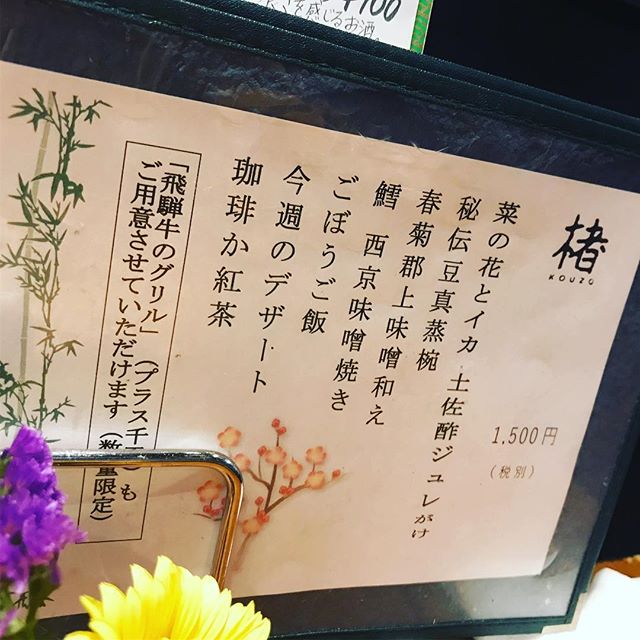 ¥700
さを感じるお酒。
楮
KOUZO
菜の花とイカ 土佐酢ジュレがけ
秘伝豆真蒸椀
春菊郡上味噌和え
鱈 西京味噌焼き
ごぼうご飯
今週のデザート
珈琲か紅茶
1,500円
(税別)
「飛騨牛のグリル」(プラス千 )も
ご用意させていただけます(数量限定)